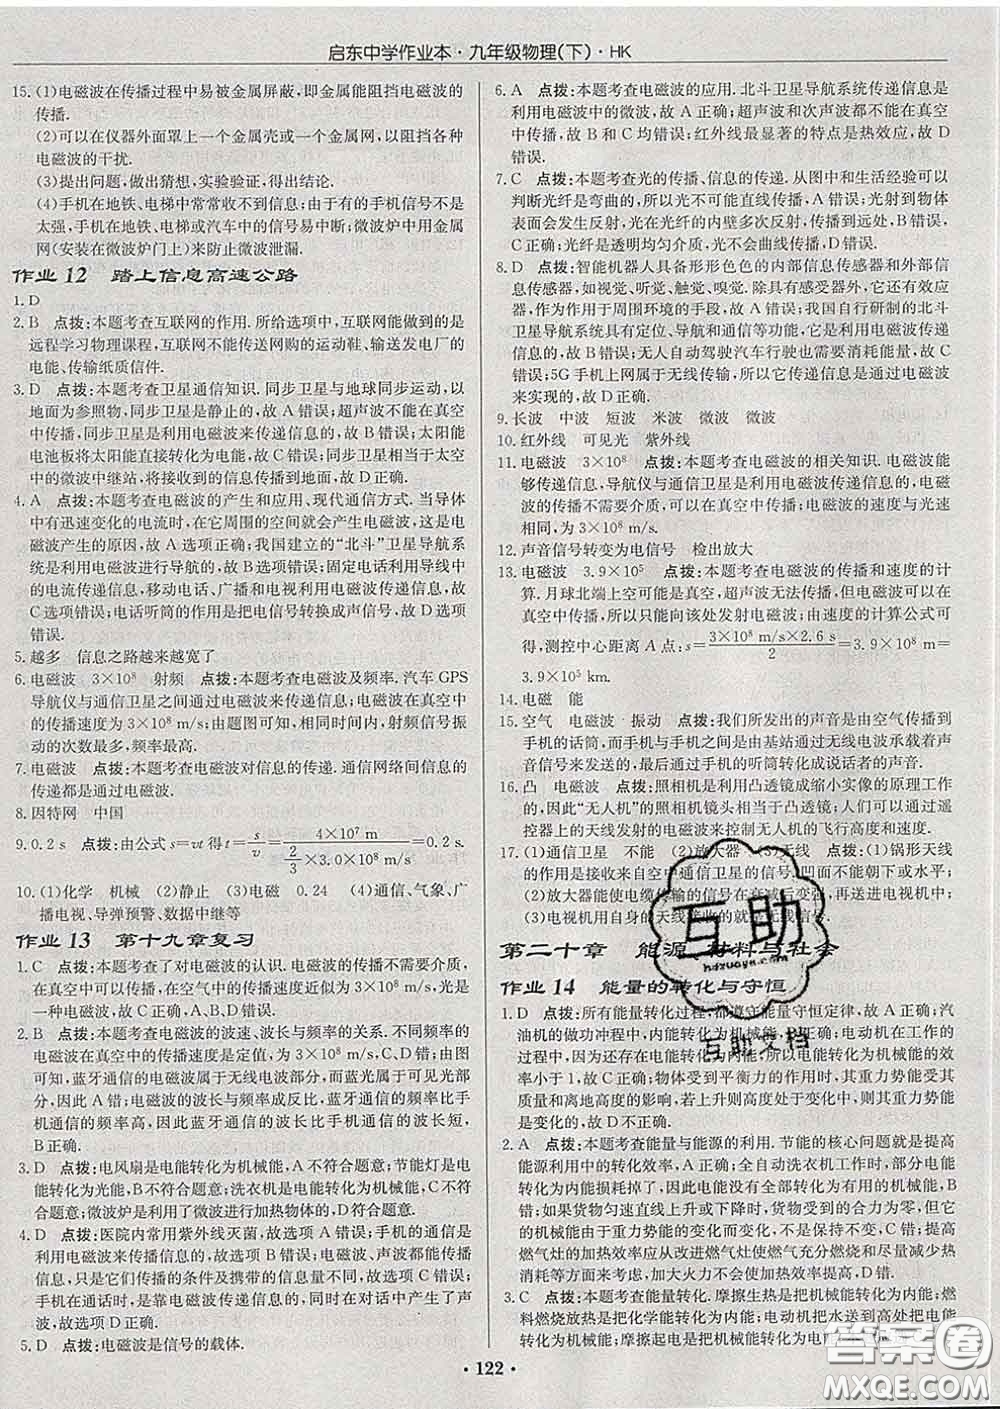 启东中学作业本·九年级物理(下)·HK
15.(1)电磁波在传播过程中易被金属屏蔽,即金属能阻挡电磁波的
传播.
(2)可以在仪器外面罩上一个金属壳或一个金属网,以阻挡各种
电磁波的干扰.
(3)提出问题,做出猜想,实验验证,得出结论.
(4)手机在地铁、电梯中常常收不到信息;由于有的手机信号不是
太强,手机在地铁、电梯或汽车中的信号易中断;微波炉中用金属
网(安装在微波炉门上)来防止微波泄漏.
作业12 踏上信息高速公路
1. D
2. B 点拨:本题考查互联网的作用.所给选项中,互联网能做到的是
远程学习物理课程,互联网不能传送网购的运动鞋、输送发电厂的
电能、传输纸质信件.
3. D 点拨:本题考查卫星通信知识.同步卫星与地球同步运动,以
地面为参照物,同步卫星是静止的,故A错误;超声波不能在真空
中传播,同步卫星是利用电磁波来传递信息的,故B错误;太阳能
电池板将太阳能直接转化为电能,故C错误;同步卫星相当于太空
中的微波中继站,将接收到的信息传递到其他地方,故D正确.
4. A 点拨:本题考查电磁波的产生和应用、现代通信方式.当导体
中有迅速变化的电流时,在它周围的空间就会产生电磁波,这就是
电磁波产生的原因,故A选项正确;我国建立的“北斗”卫星导航系
统是以电磁波进行导航的,故B选项错误;固定电话利用导线中
的电流传递信息,移动电话、广播和电视利用电磁波传递信息,故
C选项错误;电话听筒的作用是把电信号转换成声信号,故D选项
错误.
5. 越多 信息之路越来越宽了
6. 电磁波 3×10⁸ 射频 点拨:本题考查电磁波及频率.汽车GPS
导航仪与通信卫星之间通过电磁波来传递信息,电磁波在真空中
的传播速度为3×10⁸ m/s;由题图可知,射频对应的电磁波一定时间内振
动的次数最多,频率最高.
7. 电磁波 点拨:本题考查电磁波对信息的传递.通信网络间信息的
传递都是通过电磁波.
8. 因特网 中国
9. 0.2 s 点拨:由公式s=vt得t=s/v=4×10⁷ m/(2/3×3.0×10⁸ m/s)=0.2 s.
10.(1)化学 机械 (2)静止 (3)电磁 0.24 (4)通信、气象、广
播电视、导弹预警、数据中继等
作业13 第十九章复习
1. C 点拨:本题考查了对电磁波的认识.电磁波的传播不需要介质,
在真空中也可以传播,在空气中的传播速度近似为3×10⁸ m/s,光是
一种电磁波,故C正确,A、B、D错误.
2. B 点拨:本题考查电磁波的波速、波长与频率的关系.不同频率的
电磁波在真空中的传播速度是定值,为3×10⁸ m/s,C、D错误;由图
可知,蓝牙通信的电磁波属于无线电波部分,而蓝光属于可见光部
分,因此A错误;蓝牙通信的电磁波的频率比手机通信的电磁波
信号的频率高,因此蓝牙通信的波长比手机通信的波长短,
B正确.
3. D 点拨:电风扇是电能转化为机械能,A不符合题意;节能灯是电
能转化为光能,B不符合题意;洗衣机是电能转化为机械能,C不符
合题意;微波炉是利用了微波进行加热物体的,D符合题意.
4. D 点拨:医院内常用紫外线灭菌,故选项A错误;手机的通信是
利用电磁波来传播信息的,故选项B错误;电磁波、声波都能传递
信息,只是它们传播的条件及携带的信息不同,故选项C错误;手
机在通话时,是靠电磁波传递信息的,而在对话中产生了声
波,故选项D正确.
5. D 点拨:电磁波是信号的载体.
6. A 点拨:本题考查电磁波的应用.北斗卫星导航系统传递信息是
利用电磁波中的微波,故A正确;超声波和次声波都不能在真空
中传播,故B和C均错误;红外线最显著的特点是热效应,故D
错误.
7. C 点拨:本题考查光的传播、信息的传递.从图中和生活经验可以
判断光纤是弯曲的,所以光不可能直线传播,A错误;光射到物体
表面会发生反射,光在光纤的内壁多次反射,传播到远处,B错误,
C正确;光纤是透明均匀介质,光不会曲线传播,D错误.
8. D 点拨:智能机器人具备形形色色的内部信息传感器和外部信
息传感器,如视觉、听觉、触觉、嗅觉.除具有感受器外,它还有效应
器,作为作用于周围环境的手段,A错误;我国自行研制的北斗
卫星导航系统具有定位、导航和通信等功能,它是利用电磁波传递
信息的,B错误;无人自动驾驶汽车行驶也需要消耗能量,故C错
误;5G手机上网属于无线传输,所以它传递信息是通过电磁波
来实现的,故D正确.
9. 长波 中波 短波 米波 微波 微波
10. 红外线 可见光 紫外线
11. 电磁波 3×10⁸ 点拨:本题考查电磁波的相关知识.电磁波能
够传递信息,导航仪与通信卫星是利用电磁波传递信息的;电磁波
的传播不需要介质,可以在真空中传播;电磁波的速度与光速
相同,为3×10⁸ m/s.
12. 声音信号转变为电信号 检出放大
13. 电磁波 3.9×10⁵ 点拨:本题考查电磁波的传播和速度的计
算.月球北端上空可能是真空,超声波无法传播,但电磁波可以在
真空中传播,所以只能向该处发射电磁波;由速度的计算公式可
得,测控中心距离A点:s=3×10⁸ m/s×2.6 s/2=3.9×10⁸ m=
3.9×10⁵ km.
14. 电磁 能
15. 空气 电磁波 振动 点拨:我们所发出的声音是由空气传播到
手机的话筒,而手机与手机之间是由基站通过无线电波承载着声
音信号来发送的,最后由手机的听筒转化成说话者的声音.
16. 凸 电磁波 点拨:照相机是利用凸透镜成缩小实像的原理工作
的,因此“无人机”的照相机镜头相当于凸透镜;人们可以通过遥
控器上的天线发射的电磁波来控制无人机的飞行高度和速度.
17.(1)通信卫星 不能 (2)放大器 (3)无线 点拨:(1)锅形天线
的作用是接收来自空中通信卫星的信号的,因而不能朝下或水平;
(2)放大器能使电缆传输的信号在衰减后变强,再送进电视机中;
(3)电视机用自身的天线接收的就是无线信号.
第二十章 能源、材料与社会
作业14 能量的转化与守恒
1. D 点拨:所有能量转化过程,都遵守能量守恒定律,故A正确;汽
油机的做功冲程中,内能转化为机械能,故B正确;电动机在工作的
过程中,因为存在电能转化为内能,所以电能转化为机械能的效
率小于1,故C正确;物体受到平衡力的作用时,其重力势能可能改变,
跟质量和高度的影响,若上升则高度处于变化,则其重力势能
是变化的,故D不正确.
2. A 点拨:本题考查能量与能源的利用.节能的核心问题就是提高
能源利用中的转化效率,A正确;全自动洗衣机工作时,有一部分电能
因转化为内能损耗了,所以转化成的机械能小于消耗的电能,B
错;如果货物匀速直线上升或下降时,货物受到的合力为零,但
机械能由于重力势能的变化而变化,不是保持不变,C错;提高
燃气灶的加热效率应从改进燃气灶使燃气充分燃烧和尽量减少热
消耗等方面来考虑,加大火力不会使其效率提高,D错.
3. C 点拨:本题考查能量转化.摩擦生热是把机械能转化为内能;燃
料燃烧放热是把化学能转化为内能;电动机把水送到高处把电能
转化为机械能;摩擦起电是把机械能转化为电能.
·122·
互助
hdzuoye.com
互助文档
答案圈
MXQE.COM